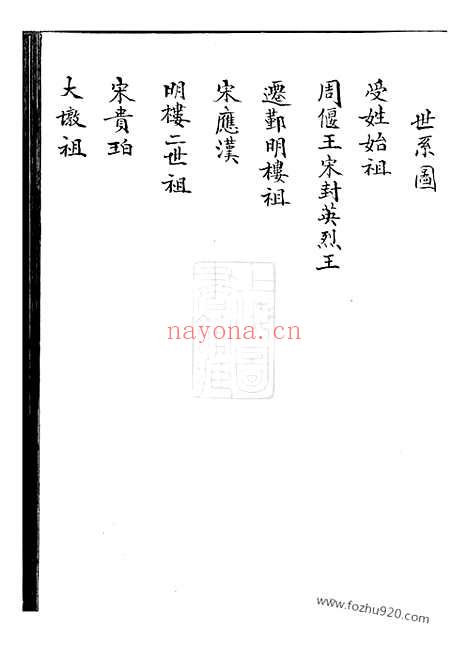 世系圖
受姓始祖
周偃王宋封英烈王
遷鄞明樓祖
宋應漢
明樓二世祖
宋貴珀
大墩祖
nayona.cn
www.fozhu920.com